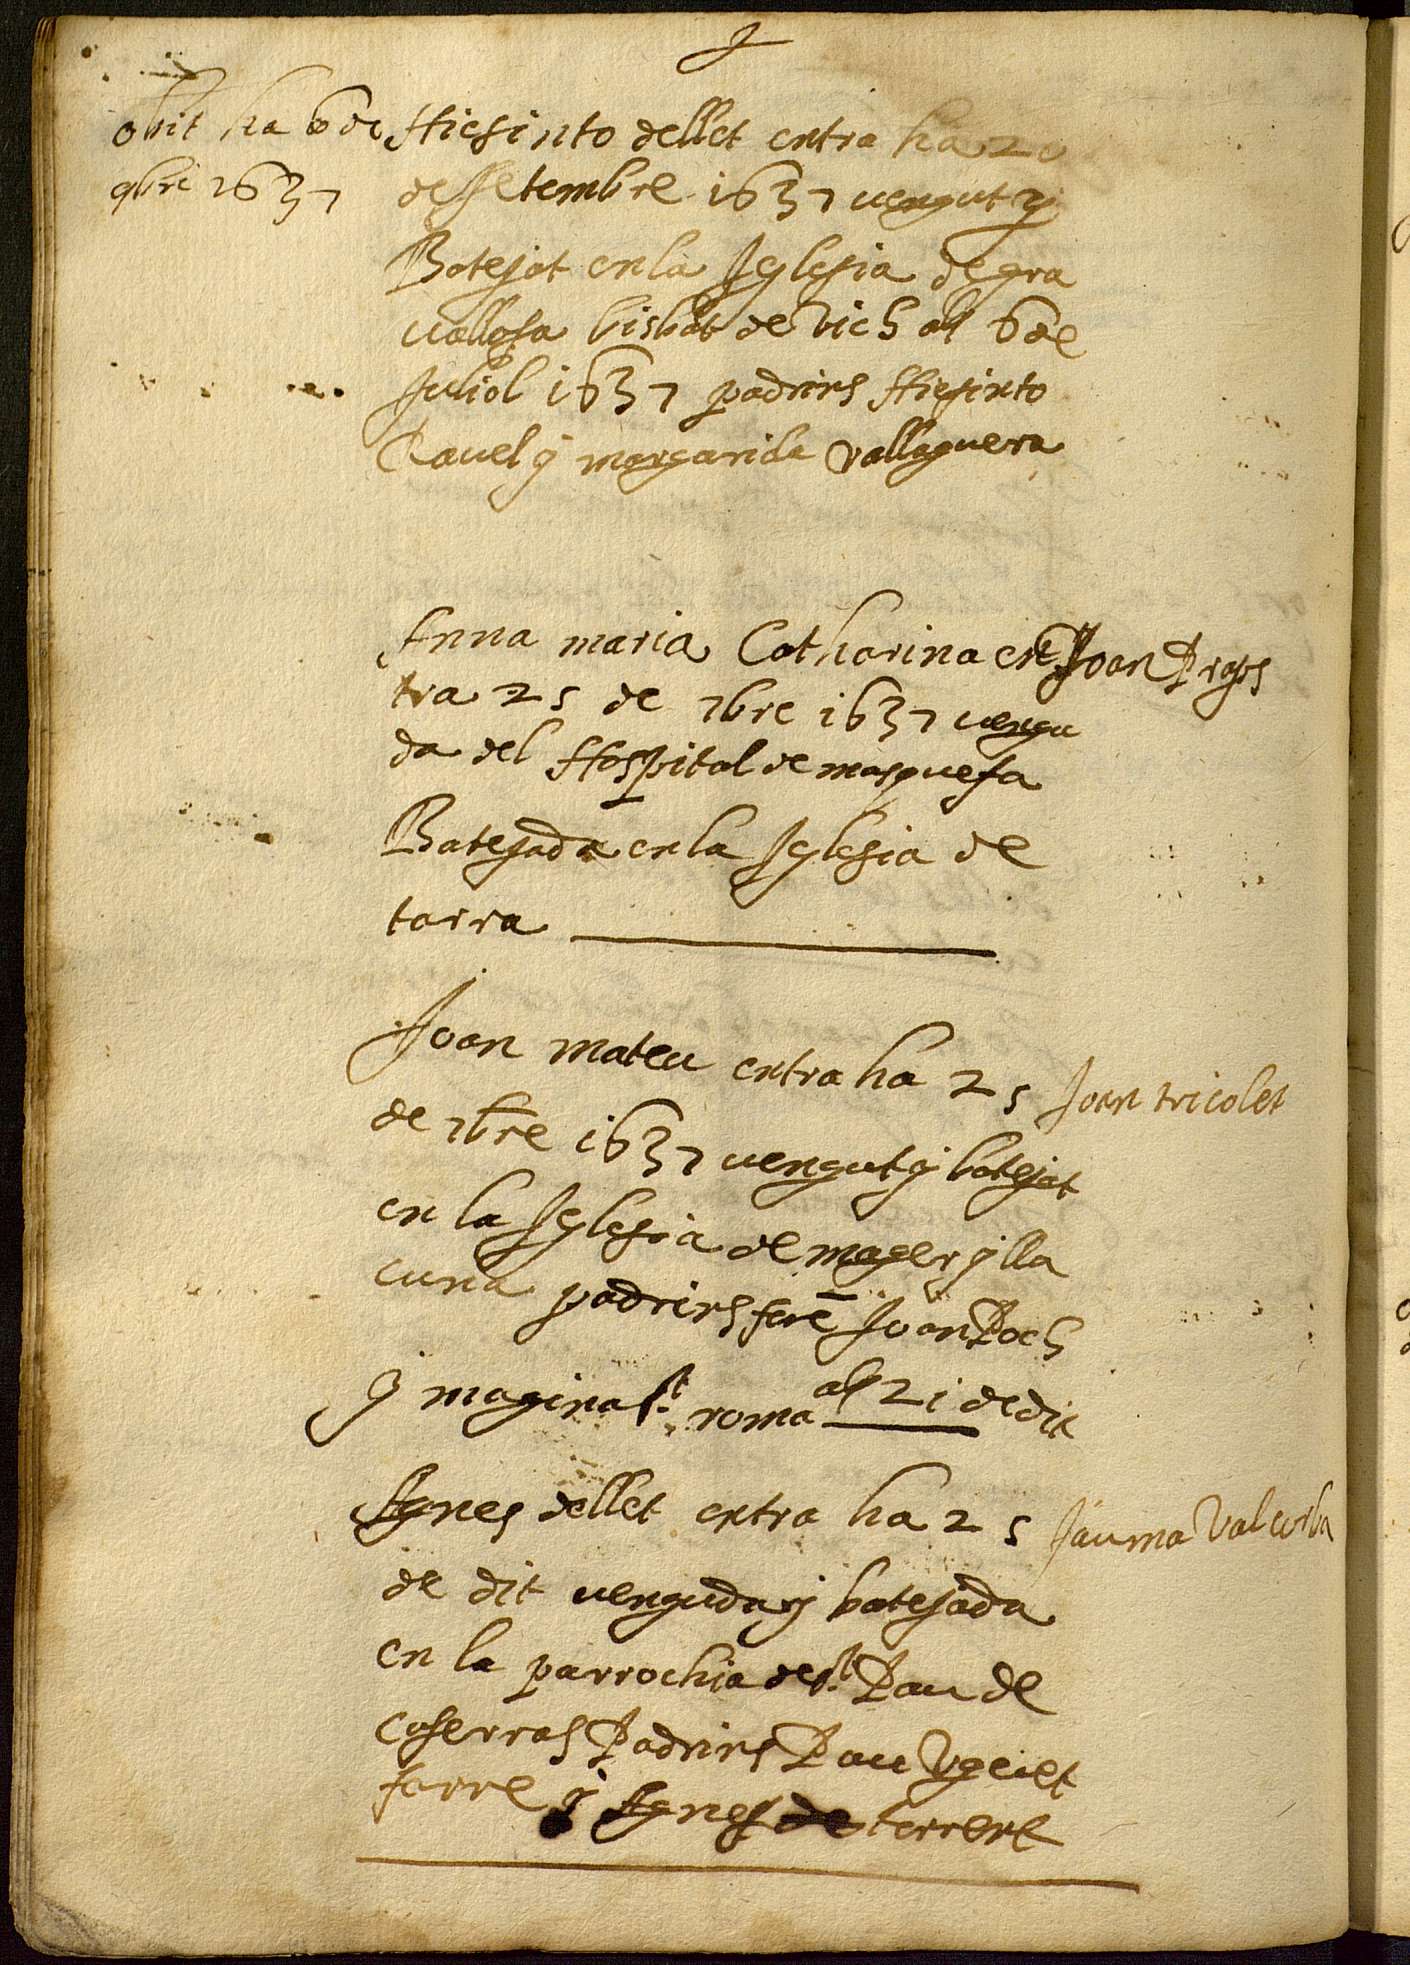 J
obit ha 6 de
9bre 1637
Hiesinto dellet entra ha 20
de setembre 1637 vengut y
Batejat en la Iglesia de gra
vallosa bisbat de Vich al 6 de
Juliol 1637 padrins Hiesinto
Ravel y margarida Vallaguera
Anna maria Catharina en
Joan
tra 25 de 7bre 1637 vengu
da del Hospital de masquefa
Batejada en la Iglesia de
tarra
Joan mateu entra ha 25
Joan tricolet
de 7bre 1637 vengut y batejat
en la Iglesia de y lla
cuna padrins forē Joan Poch
y magina St. roma al 21 de dit
Agnes dellet entra ha 25
Jauma Valcorba
de dit venguda y batejada
en la parrochia de St. Pau de
coserras Padrins Pau
farre y Agnes terrere